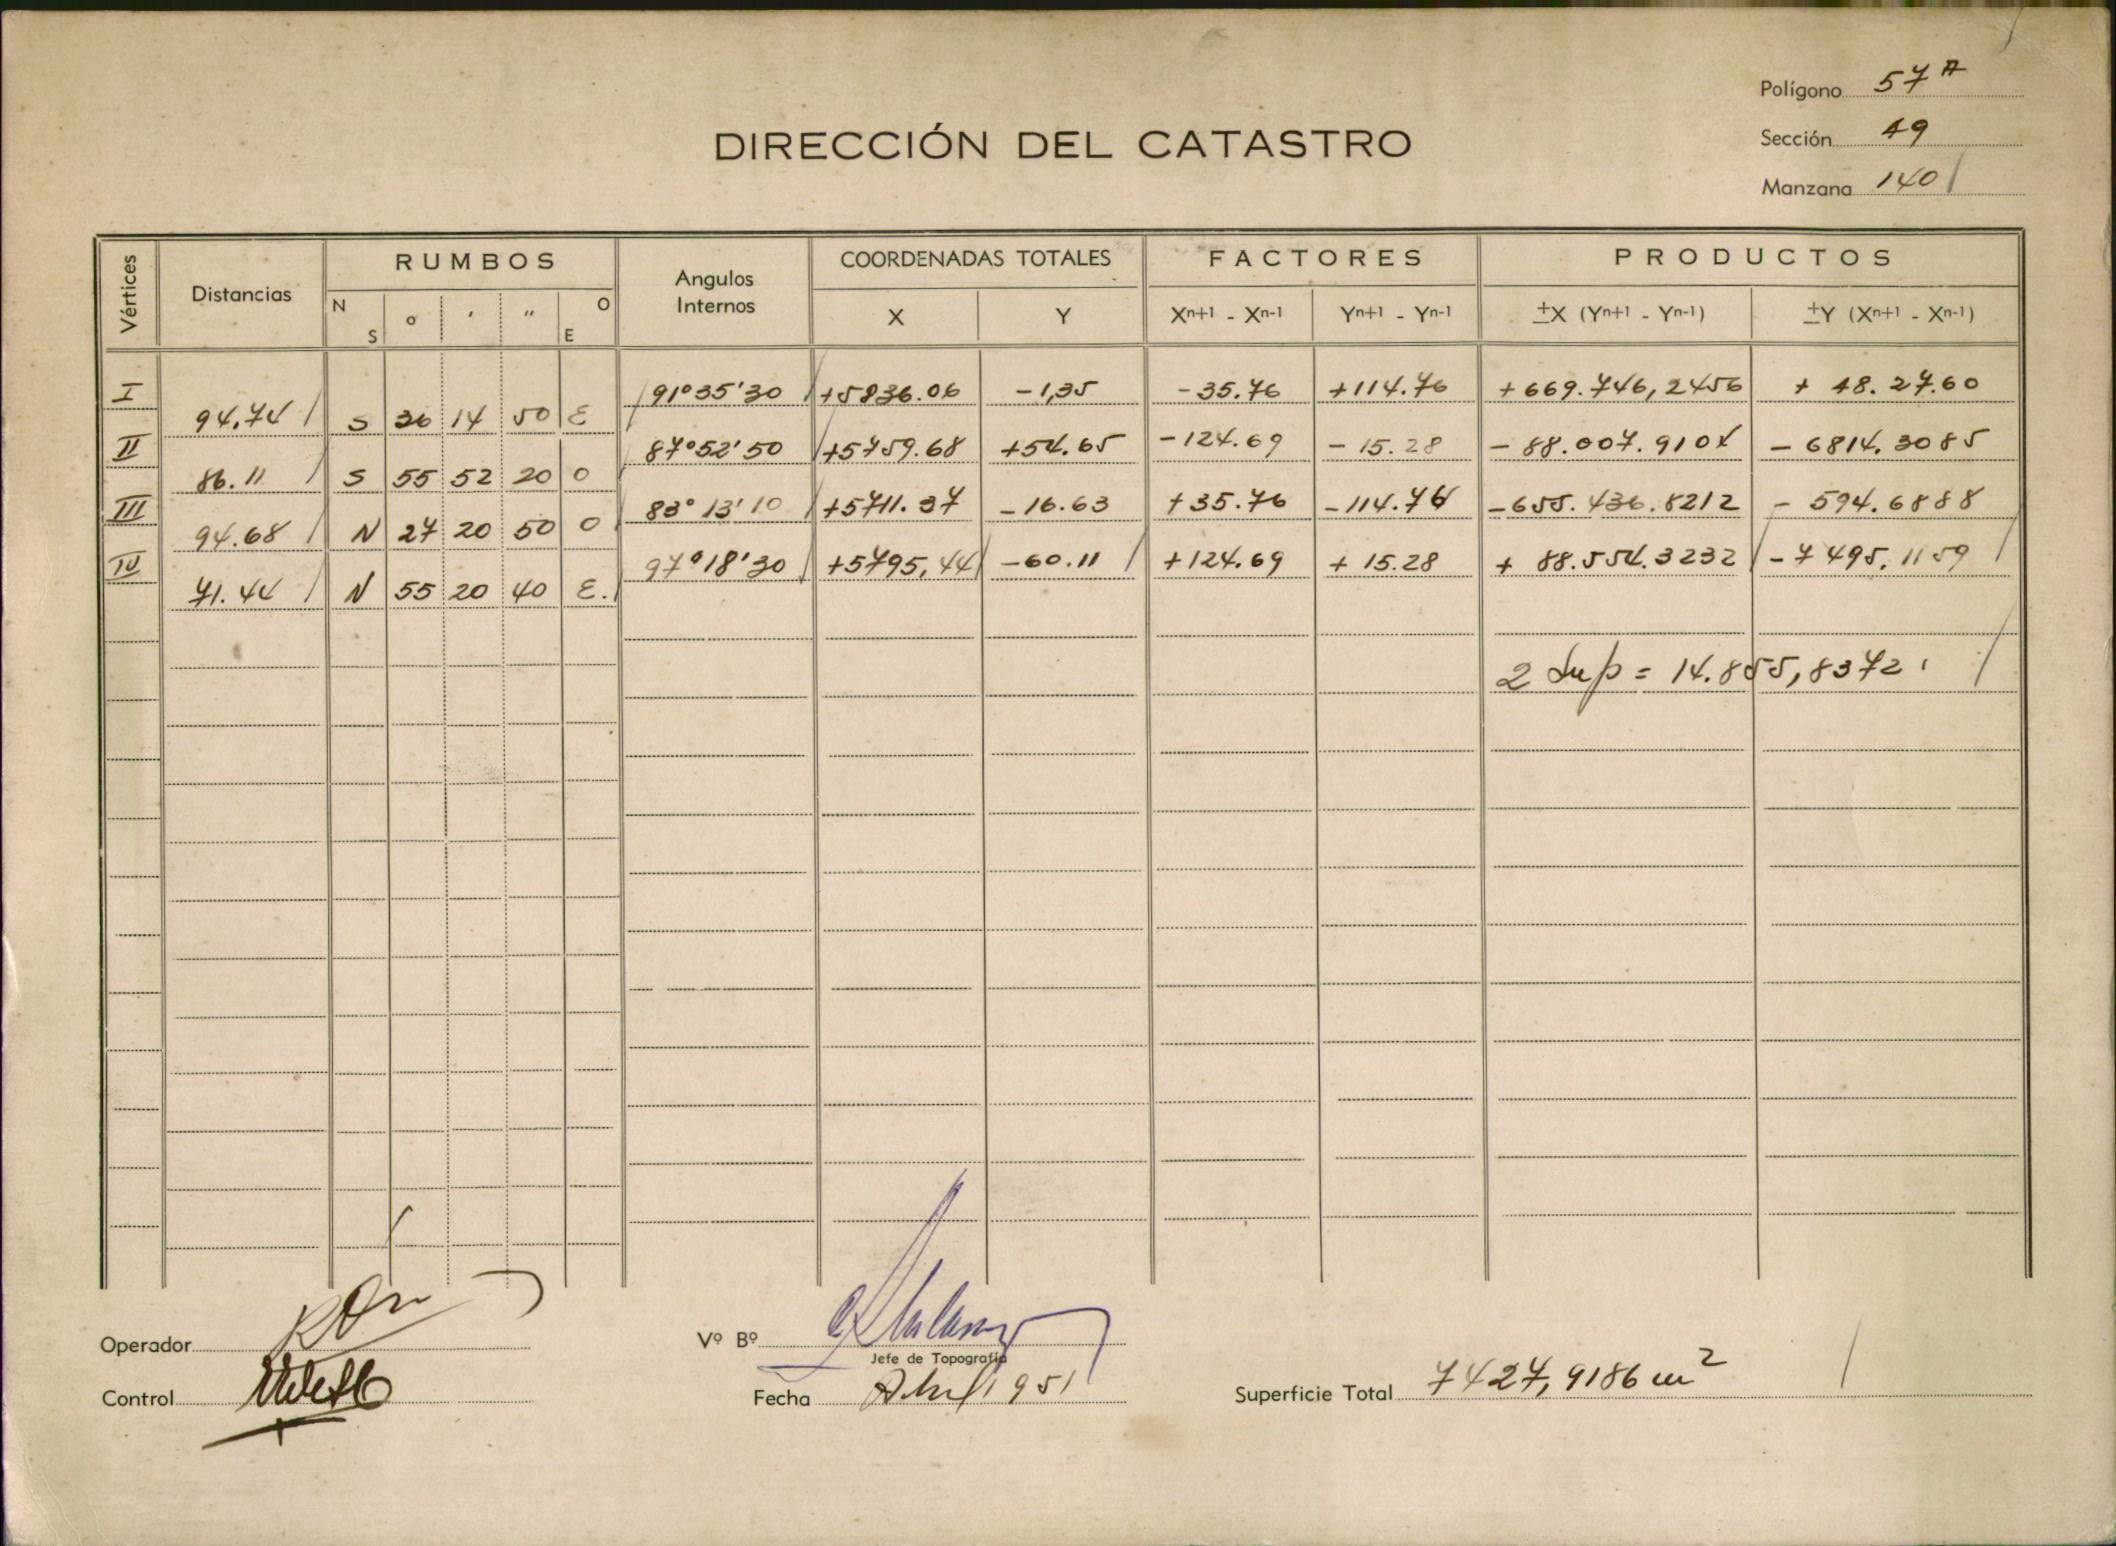 Polígono 57 A
DIRECCIÓN DEL CATASTRO
Sección 49
Manzana 140
Vértices Distancias RUMBOS Angulos Internos COORDENADAS TOTALES FACTORES PRODUCTOS
N S o ' " O E X Y Xn+1 - Xn-1 Yn+1 - Yn-1 ±X (Yn+1 - Yn-1) ±Y (Xn+1 - Xn-1)
I 91°35'30 +5836.06 -1,35 -35.76 +114.76 +669.746,2456 + 48.27.60
94.74 S 36 14 50 E
II 87°52'50 +5759.68 +54.65 -124.69 - 15.28 - 88.007.9104 - 6814.3085
86.11 S 55 52 20 O
III 83°13'10 +5711.37 -16.63 +35.76 -114.76 -655.436.8212 - 594.6888
94.68 N 27 20 50 O
IV 97°18'30 +5795,44 -60.11 +124.69 + 15.28 + 88.554.3232 -7495.1159
71.44 N 55 20 40 E.
2 Sup = 14.855,8372
Operador
Vº Bº
Jefe de Topografía
Control
Fecha Abril 1951
Superficie Total 7427,9186 m²